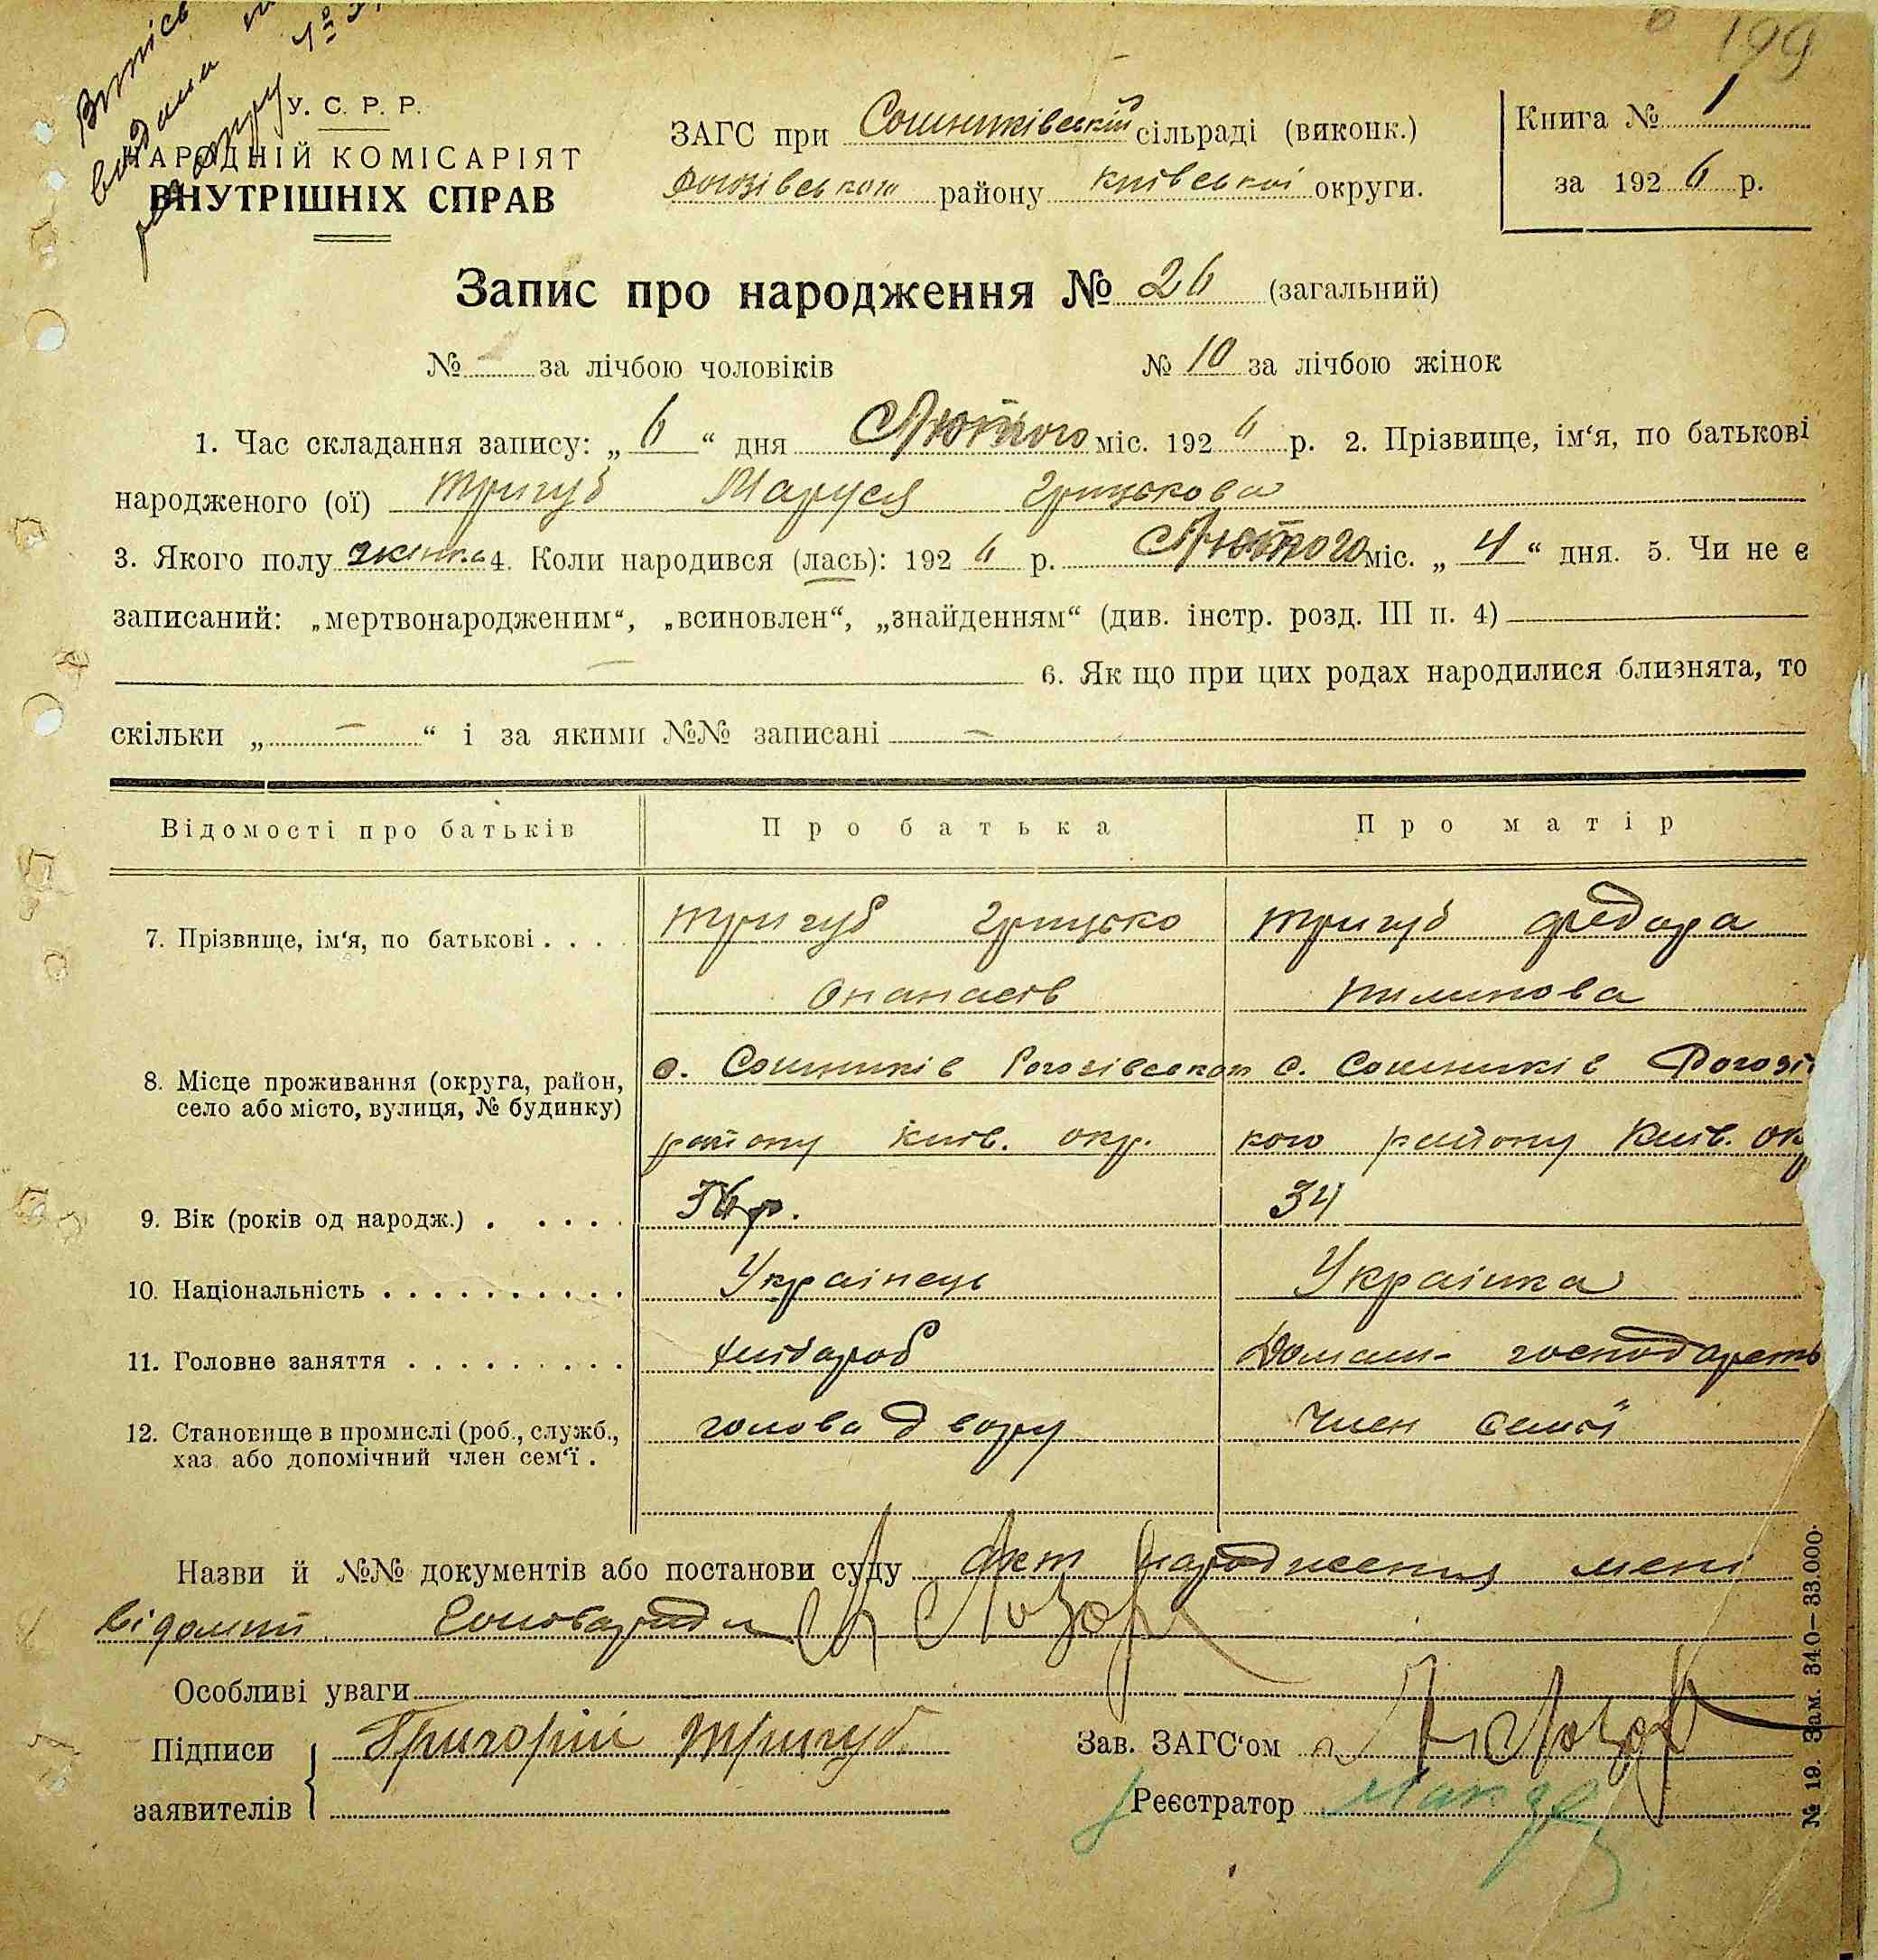 199
Витпісь
видана
У. С. Р. Р.
НАРОДНІЙ КОМІСАРІЯТ
ВНУТРІШНІХ СПРАВ
ЗАГС при Сошниківській сільраді (виконк.)
Рогозівського району Київської округи.
Книга № 1
за 1926 р.
Запис про народження № 26 (загальний)
№ - за лічбою чоловіків № 10 за лічбою жінок
1. Час складання запису: „ 6 “ дня Лютого міс. 1926 р. 2. Прізвище, ім‘я, по батькові
народженого (ої) Тригуб Маруся Грицькова
3. Якого полу жінка 4. Коли народився (лась): 1926 р. Лютого міс. „ 4 “ дня. 5. Чи не є
записаний: „мертвонародженим“, „всиновлен“, „знайденням“ (див. інстр. розд. III п. 4)
— 6. Як що при цих родах народилися близнята, то
скільки „ — “ і за якими №№ записані —
Відомості про батьків Про батька Про матір
7. Прізвище, ім‘я, по батькові . . . . Тригуб Грицько Тригуб Федора
Опанасів Пилипова
8. Місце проживання (округа, район, с. Сошників Рогозівського с. Сошників Рогозівсь
село або місто, вулиця, № будинку)
району Київ. окр. кого району Київ. ок
9. Вік (років од народж.) . . . . . 36 р. 34
10. Національність . . . . . . . . . . Українець Українка
11. Головне заняття . . . . . . . . . Хлібороб Домаш- господарств
12. Становище в промислі (роб., служб., голова двору Член семії
хаз. або допомічний член сем‘ї .
Назви й №№ документів або постанови суду Факт народження мені
відомий Головаради Лозов
Особливі уваги
Підписи Григорій Тригуб Зав. ЗАГС‘ом
заявителів Реєстратор
№ 19. Зам. 340—33.000.